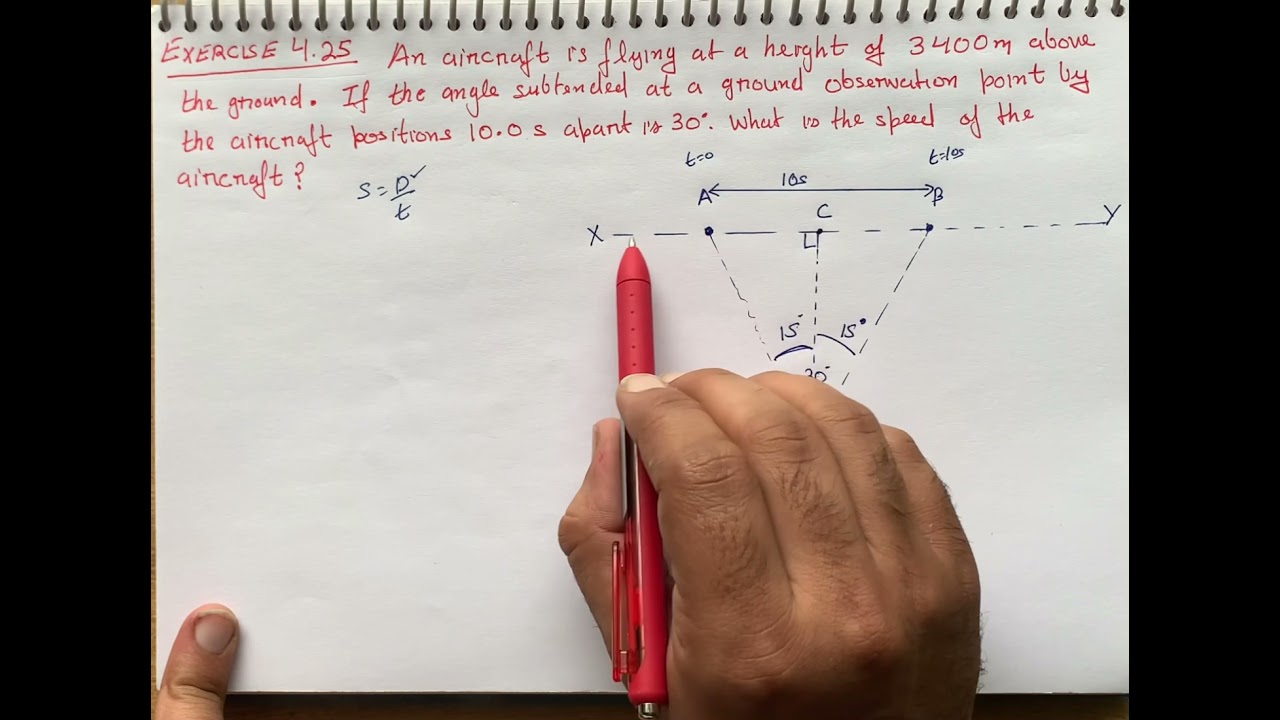 EXERCISE 4.25 An aircraft is flying at a height of 3400m above
the ground. If the angle subtended at a ground observation point by
the aircraft positions 10.0 s apart is 30°. What is the speed of the
aircraft?
S = D ✓
t
t=0
t=10s
10s
A
B
C
X
Y
15°
15°
30°